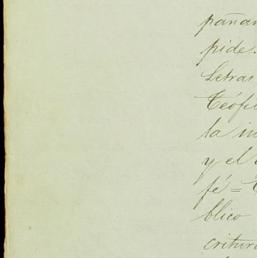 pañan
pide.
Letras
Teófi
la in
y el
fé =
blico
critura